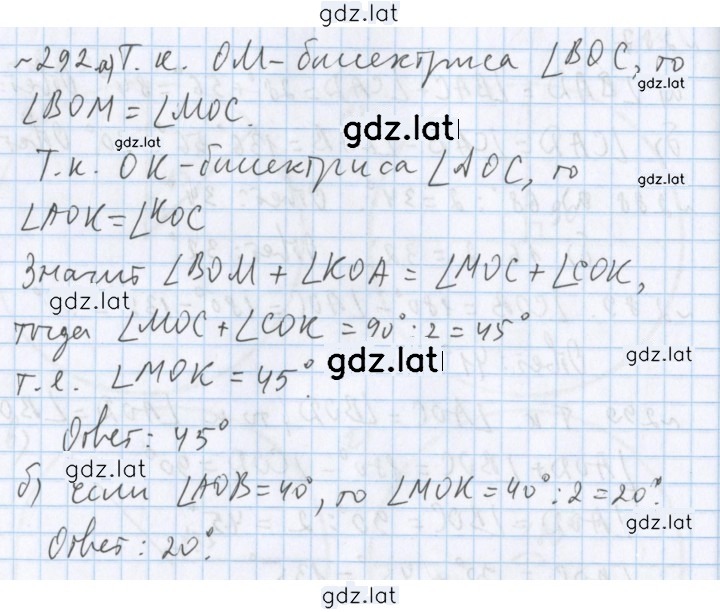 gdz.lat
№292 а) Т. к. ОМ - биссектриса ∠BOC, то
gdz.lat
∠BOM = ∠MOC.
gdz.lat
gdz.lat
Т.к. ОК - биссектриса ∠AOC, то
gdz.lat
∠AOK = ∠KOC
Значит ∠BOM + ∠KOA = ∠MOC + ∠COK,
gdz.lat
тогда ∠MOC + ∠COK = 90° : 2 = 45°
gdz.lat
gdz.lat
т.е. ∠MOK = 45°.
Ответ: 45°
gdz.lat
б) если ∠AOB = 40°, то ∠MOK = 40° : 2 = 20°.
gdz.lat
Ответ: 20°.
gdz.lat